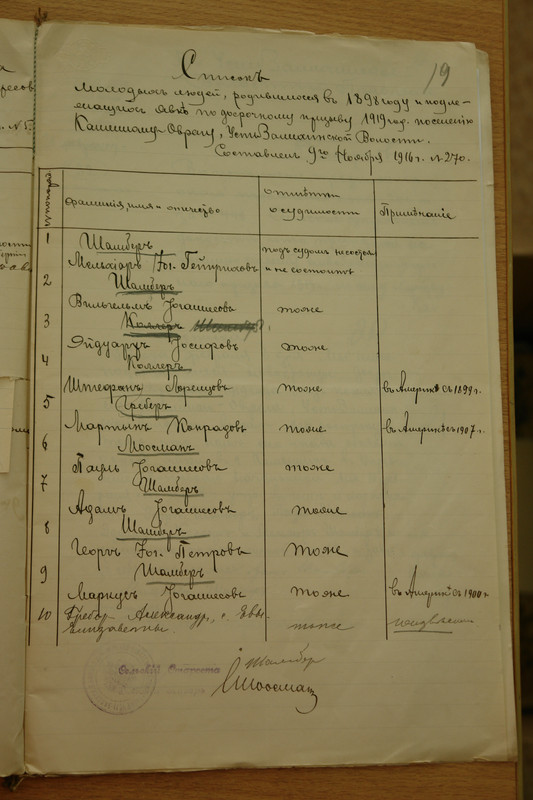 19
Списокъ
молодыхъ людей, родившихся въ 1898 году и подле-
жащихъ явкѣ по досрочному призыву 1919 год. поселенію
Каменному Оврагу, Усть Золихинской Волости.
Составленъ 9го Ноября 1916 г. № 270.
Фамилія, имя и отчество.
отмѣтки
о судимости
Примѣчаніе
1 Шамберъ
Мельхіоръ Іог. Гейнриховъ
подъ судомъ не состоялъ
и не состоитъ
2 Шамберъ
Вильгельмъ Іоганнесовъ тоже
3 Коллеръ
Эйдуардъ Іосифовъ тоже
4 Коллеръ
Штефанъ Лоренцовъ тоже въ Америкѣ съ 1899 г.
5 Греберъ
Мартынъ Конрадовъ тоже въ Америкѣ съ 1907 г.
6 Моосманъ
Пауль Іоганнесовъ тоже
7 Шамберъ
Адамъ Іоганнесовъ тоже
8 Шамберъ
Георгъ Іог. Петровъ тоже
9 Шамберъ
Маркусъ Іоганнесовъ тоже въ Америкѣ съ 1900 г.
10 Гребер Александръ, с. Евы-
Елизаветы. тоже неизвѣстно
Сельскій Староста Шамбер
Моосман